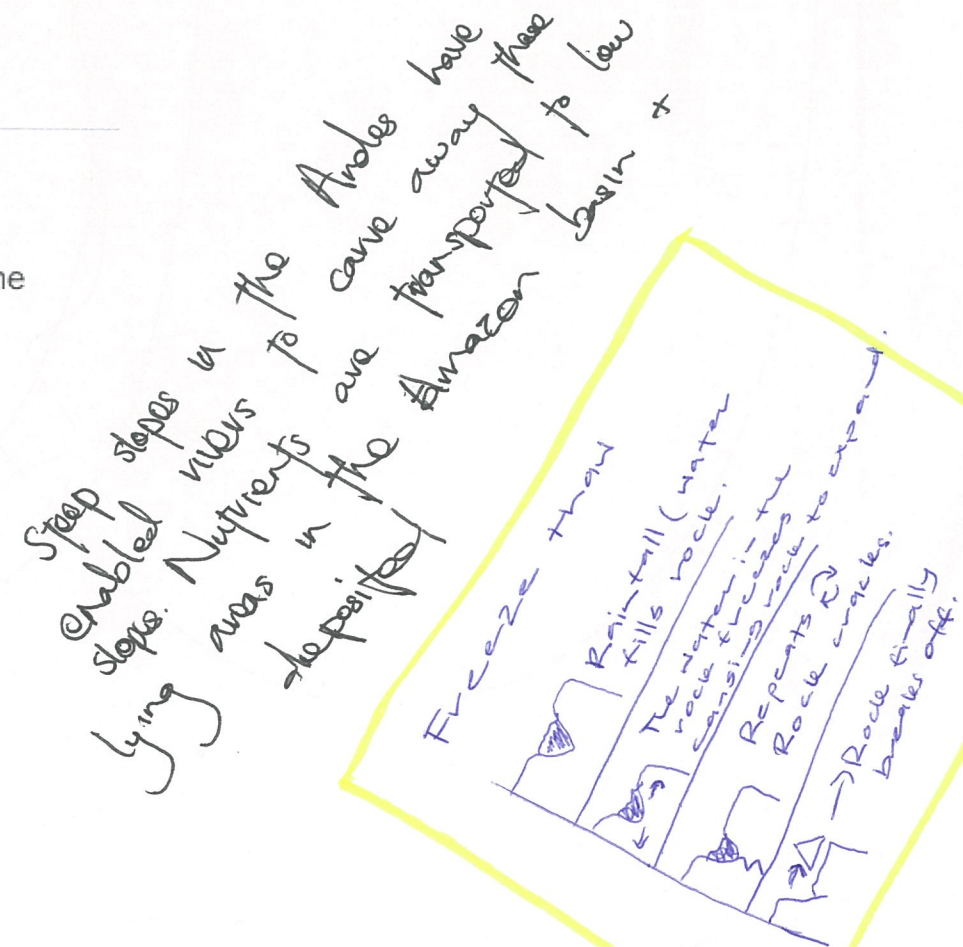 ne
Steep slopes in the Andes have
enabled rivers to carve away these
slopes. Nutrients are transported to low
lying areas in the Amazon basin +
deposited
Freeze thaw
Rainfall (water
fills rock.
The water in the
rock freezes
causing rock to expand.
Repeats
Rock cracks.
→ Rock finally
breaks off.